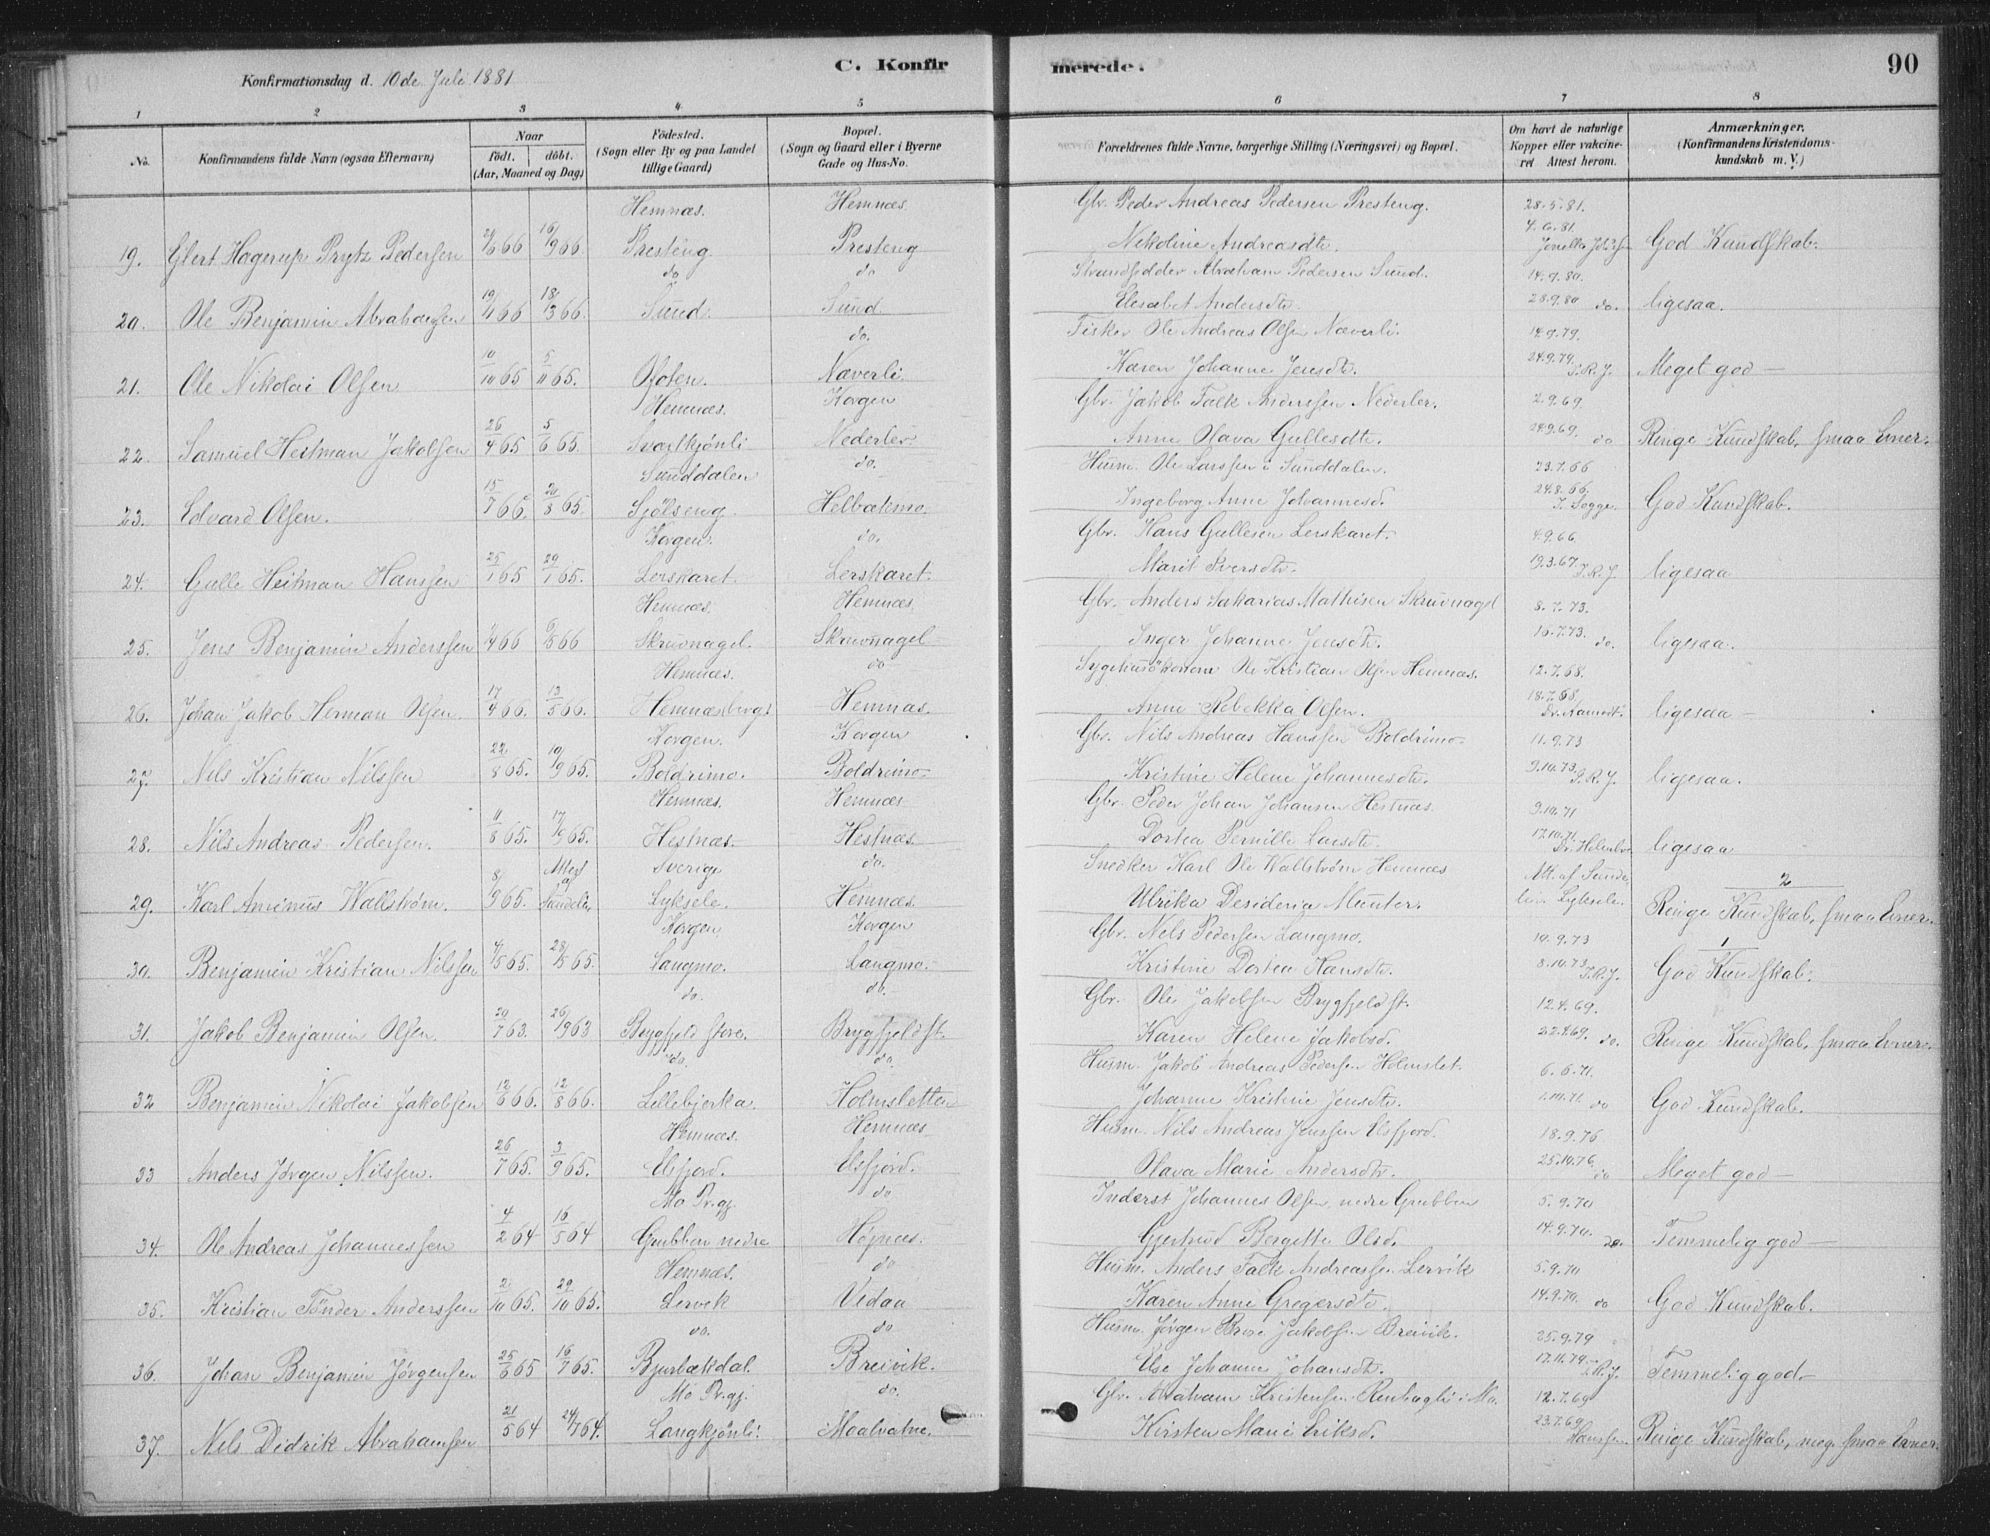 Konfirmationsdag d. 10de Juli 1881
C. Konfirmerede.
90
1 2 3 4 5 6 7 8
No.
Konfirmandens fulde Navn (ogsaa Efternavn)
Naar
födt. döbt.
(Aar, Maaned og Dag)
Födested.
(Sogn eller By og paa Landet tillige Gaard)
Bopæl.
(Sogn og Gaard eller i Byerne Gade og Hus-No.
Forældrenes fulde Navne, borgerlige Stilling (Næringsvei) og Bopæl.
Om havt de naturlige Kopper eller vakcineret Attest herom.
Anmærkninger.
(Konfirmandens Kristendomskundskab m. V.)
Hemnæs. Hemnæs. Gbr. Peder Andreas Pedersen Presteng. 28.5.81.
19. Glert Hagerup Prytz Pedersen 66 16/9 66 Presteng Presteng Nekoline Andreasdtr. 4.6.81. God Kundskab.
do do Strandsidder Abraham Pedersen Sund. 14.9.80.
20. Ole Benjamin Abrahamsen 66 18/3 66. Sund. Sund. Elesabet Andersdtr. 28.9.80 do. ligesaa.
do. Fisker Ole Andreas Olsen Næverli. 14.9.79.
21. Ole Nikolai Olsen 10/10 65 5/11 65. Ofoten. Næverli Karen Johanne Jensdtr. 24.9.79. J.R.J. Meget god —
Hemnæs. Korgen Gbr. Jakob Falk Anderssen Nederler. 2.9.69.
22. Samuel Heitman Jakobsen 26/4 65 5/6 65. Svartkjönli Nederler Anne Olava Gullesdtr. 24.9.69. do Ringe Kundskab, smaa Evner.
Sunddalen do. Husm. Ole Larssen i Sunddalen. 23.7.66
23. Edvard Olsen. 15/7 65. 20/8 65. Sjölseng Helbækmo. Ingeborg Anne Johannesd. 24.8.66 God Kundskab.
Korgen. do. Gbr. Hans Gullesen Lerskaret. 4.9.66
24. Gulle Heitman Hanssen 25/1 65 29/1 65. Lerskaret. Lerskaret. Marit Iversdtr. 19.3.67. J.R.J. ligesaa
Hemnæs. Hemnæs. Gbr. Anders Sakarias Mathisen Skruvnagel 8.7.73.
25. Jens Benjamin Anderssen 66 66 Skruvnagel. Skruvnagel Inger Johanne Jensdtr. 16.7.73. do. ligesaa.
Hemnæs. do Sygehusökonom Ole Kristian Olsen Hemnæs. 12.7.68.
26. Johan Jakob Herman Olsen. 17/4 66. 13/5 66. Hemnæsberg. Hemnæs. Anne Rebekka Olsen. 18.7.68. ligesaa —
Korgen. Korgen Gbr. Nils Andreas Hanssen Boldrimo. 11.9.73
27. Nils Kristian Nilssen 22/8 65. 10/9 65. Boldrimo. Boldrimo. Kristine Helene Johannesdtr. 9.10.73. J.R.J. ligesaa.
Hemnæs. Hemnæs Gbr. Peder Johan Johansen Hestnæs. 9.10.71
28. Nils Andreas Pedersen. 11/8 65. 17/9 65. Hestnæs. Hestnæs. Dortea Pernille 17.10.71 ligesaa
Attest af Sverige do. Snedker Karl Ole Wallström Hemnæs Att. af
29. Karl Aminus Wallström. 8/9 65. Lyksele. Hemnæs. Ulrika Desideria Munter. Lyksele. 2 Ringe Kundskab, smaa Evner.
Korgen Korgen Gbr. Nels Pedersen Langmo. 10.9.73 1
30. Benjamin Kristian Nilssen 4/5 65. 28/5 65. Langmo. Langmo. Kristine Dortea Hansdtr. 8.10.73. J.R.J. God Kundskab.
do. do. Gbr. Ole Jakobsen Brygfjeld st. 12.4.69.
31. Jakob Benjamin Olsen. 20/7 63. 26/9 63 Brygfjeld store. Brygfjeld st. Karen Helene Jakobsd. 22.4.69. do. Ringe Kundskab, smaa Evner.
do. do. Husm. Jakob Andreas Pedersen Holmslet. 6.6.71.
32 Benjamin Nikolai Jakobsen 12/6 66. 12/8 66. Lillebjerka. Holmsletten Johanne Kristine Jensdtr. 1.10.71. do God Kundskab.
Hemnæs. Hemnæs Husm. Nils Andreas Jenssen Elsfjord. 18.9.76
33 Anders Jörgen Nilssen. 26/7 65. 3/9 65. Elsfjord. Elsfjord. Olava Marie Andersdtr. 25.10.76. do Meget god —
Mo Pr.gj. do Inderst Johannes Olsen, nedre Grubben 5.9.70
34. Ole Andreas Johannessen 4/2 64 16/5 64 Grubben nedre Højnæs. Gjertrud Bergitte Olsd. 14.9.70. do. Temmelig god —
Hemnæs. do Husm. Anders Falk Andreassen Lervik 5.9.70
35. Kristian Tönder Anderssen 2/10 65. 29/10 65. Lervik Vidaa Karen Anne Gregersdtr. 14.9.70. do God Kundskab.
do. do Husm. Jörgen Jakobsen Breivik. 25.9.79
36. Johan Benjamin Jörgensen 25/6 65 16/7 65. Bjurbækdal. Breivik. Else Johanne Johansdtr. 17.11.79. J.R.J. Temmelig god. —
Mo Pr.gj. do. Gbr. Abraham Kristensen i Mo. 12.7.69
37. Nils Didrik Abrahamsen 21/5 64 24/7 64. Langkjönli. Moalvatne. Kirsten Marie Eriksd. 23.7.69 Hanssen. Ringe Kundskab, meg. smaa Evner.